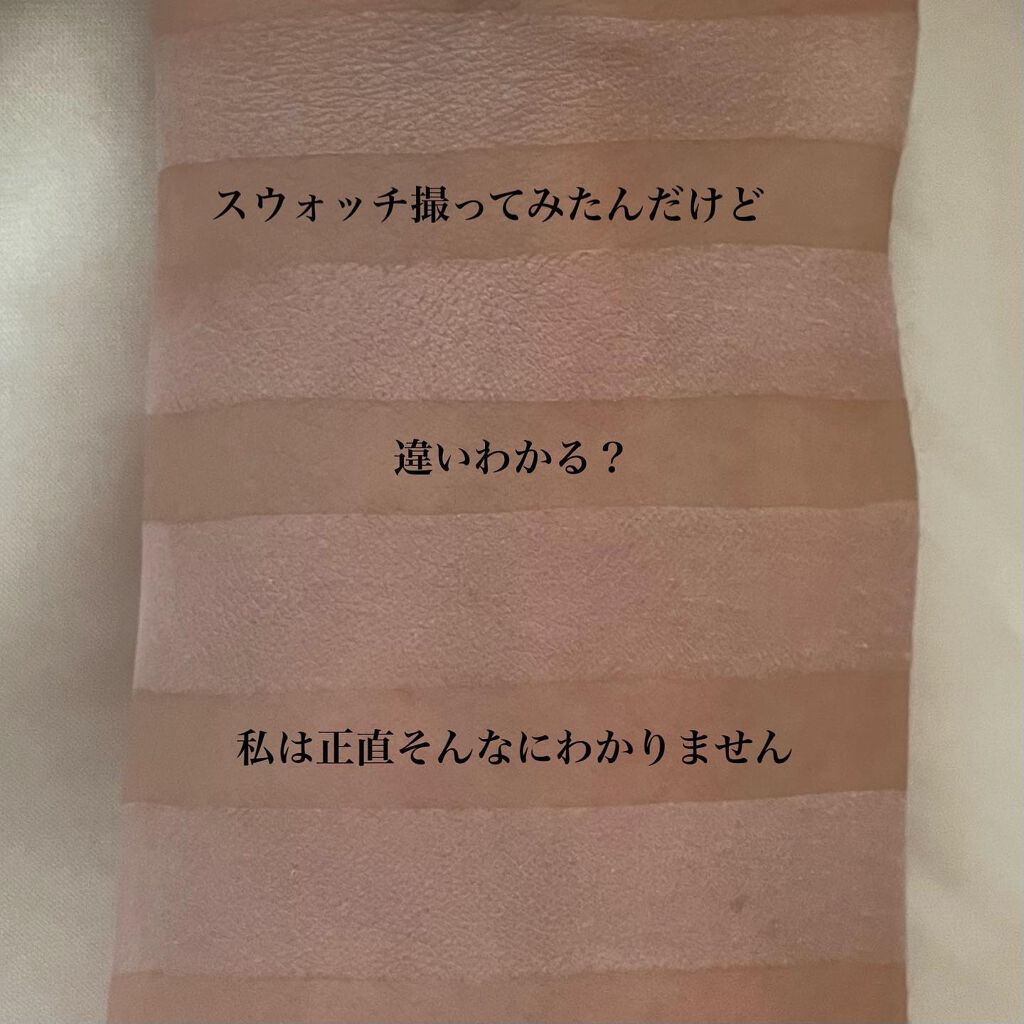 スウォッチ撮ってみたんだけど
違いわかる？
私は正直そんなにわかりません